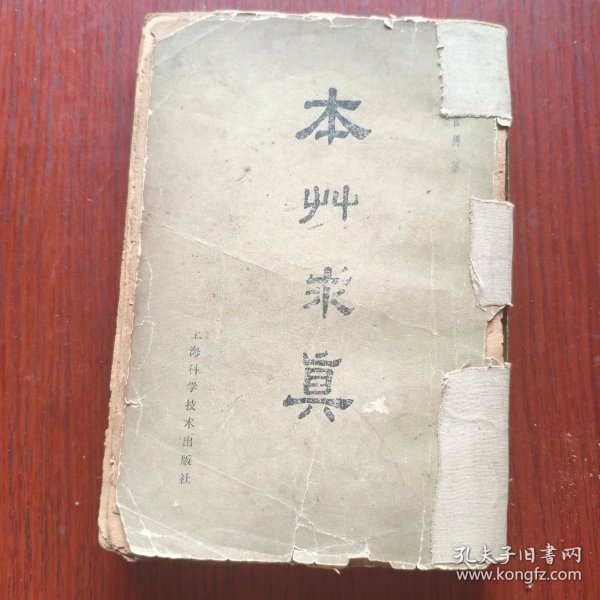 宫绣纂
本艸求真
上海科学技术出版社
孔夫子旧书网
www.kongfz.com